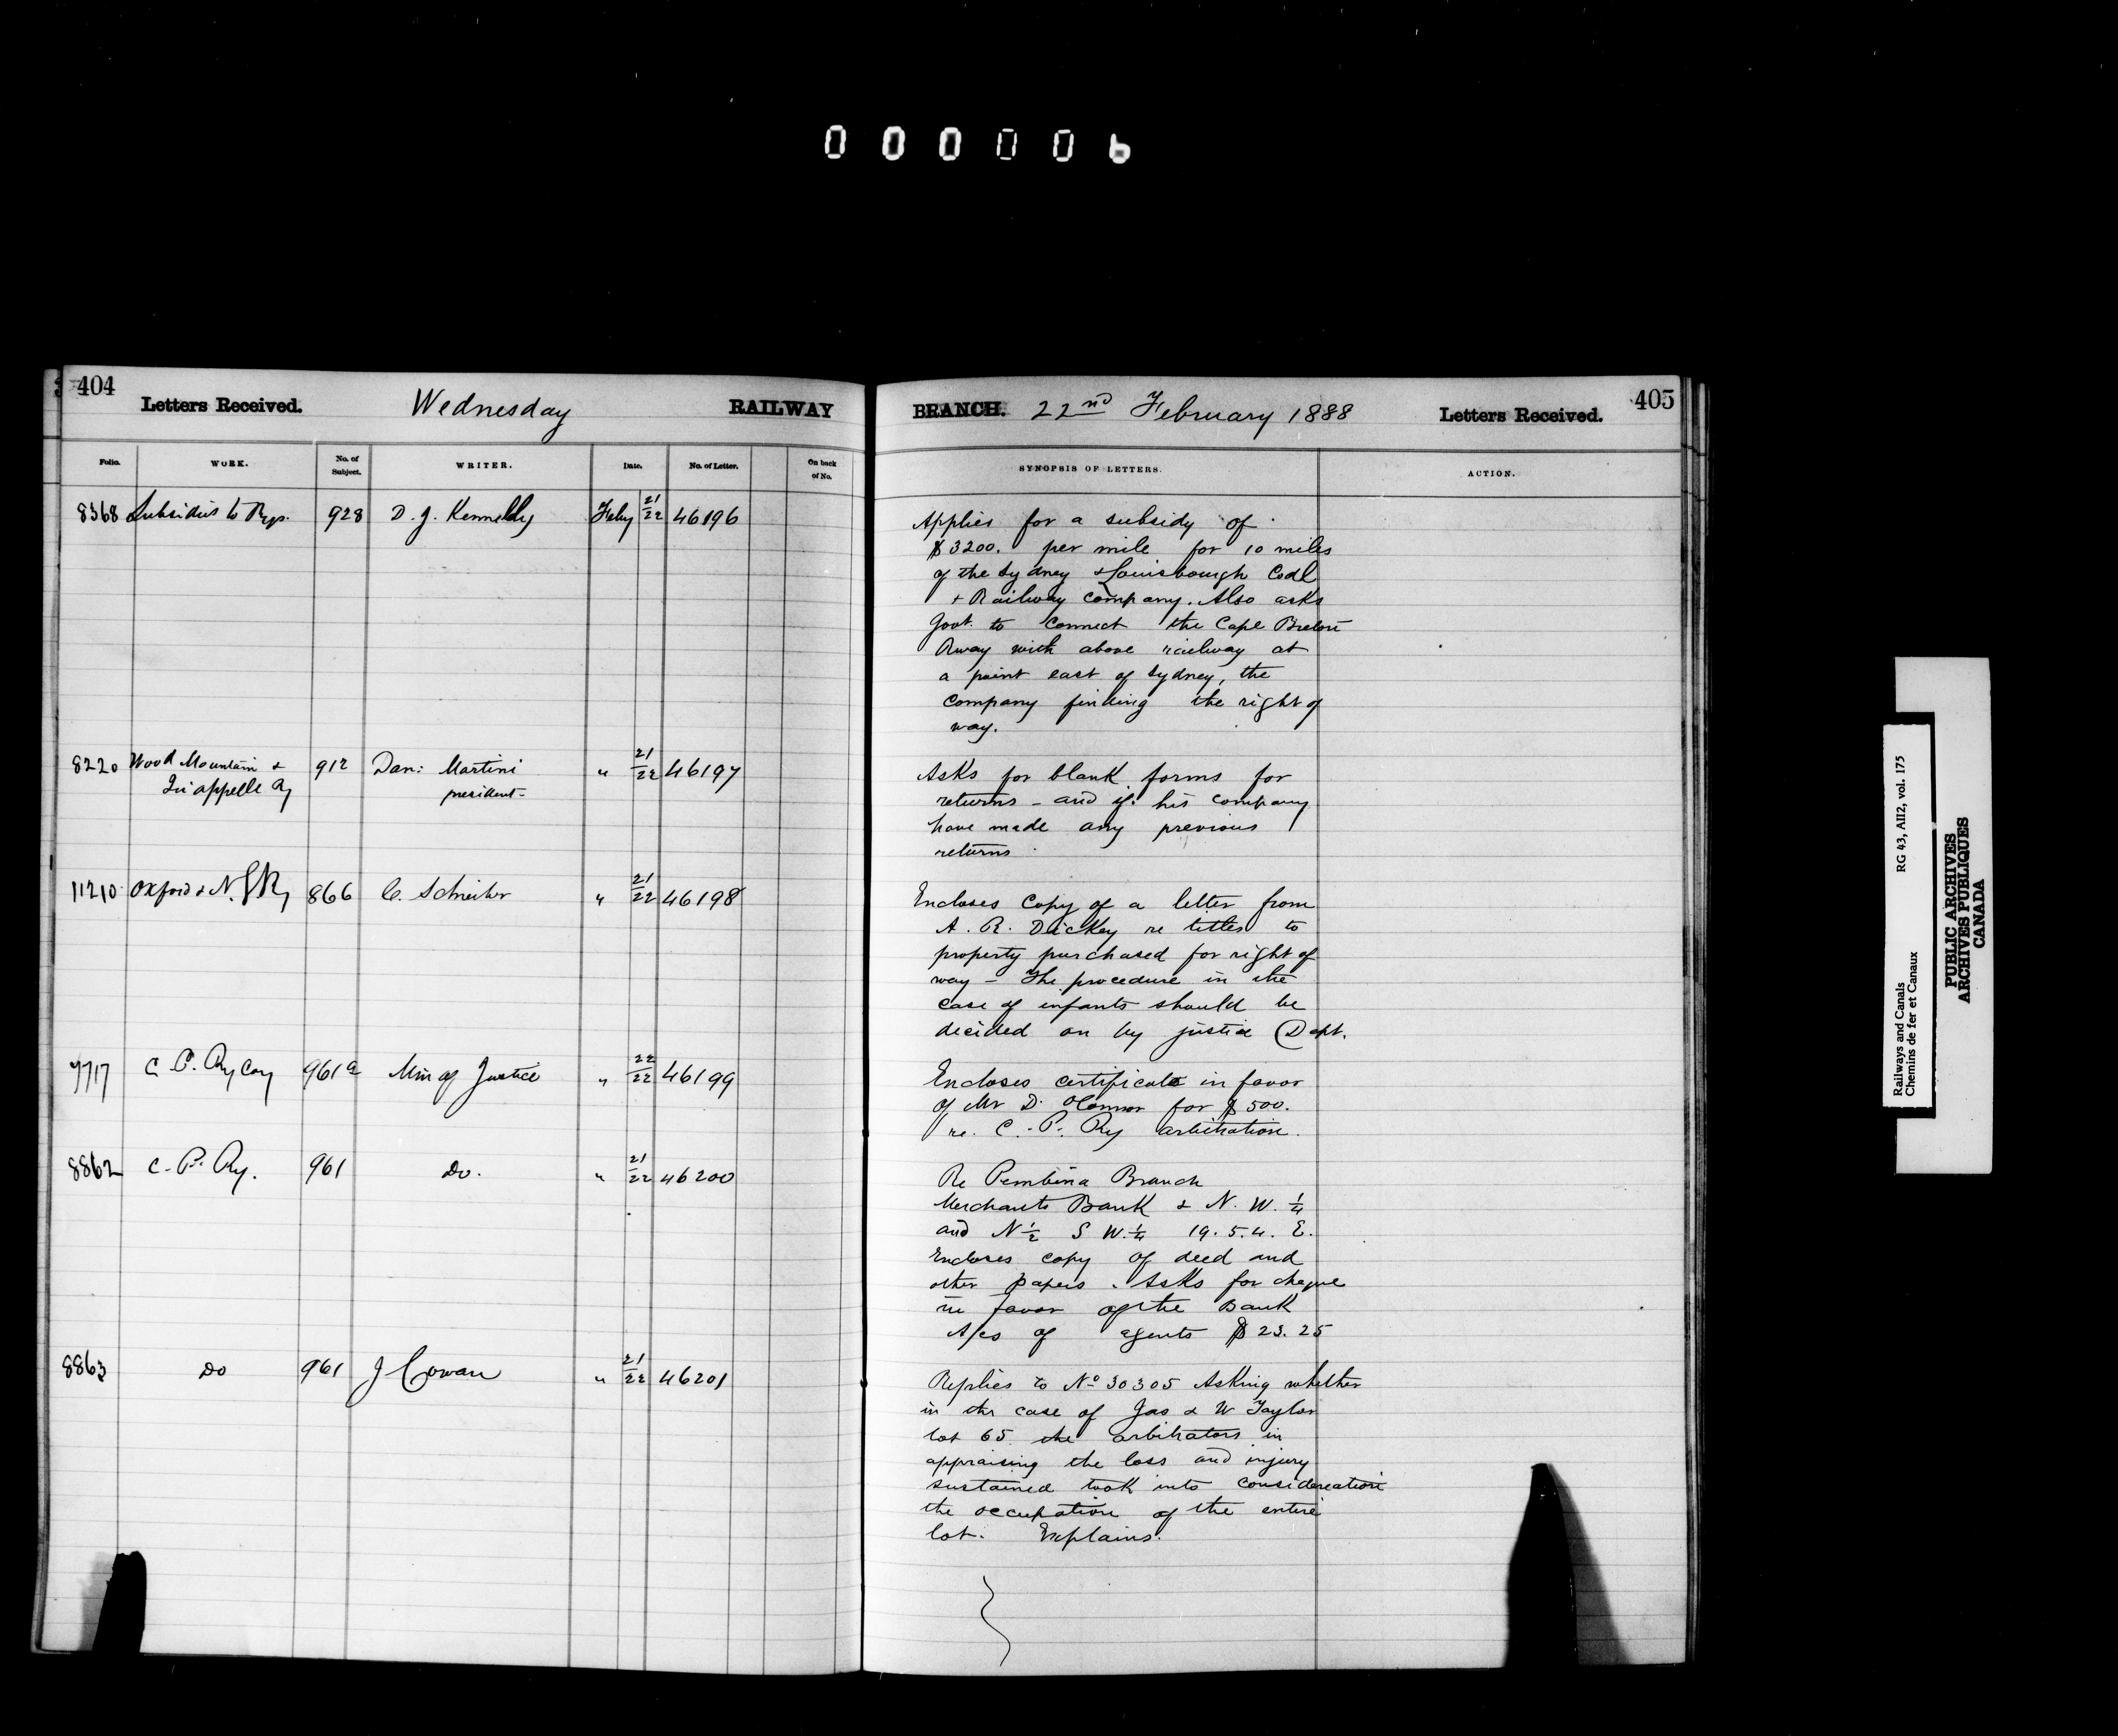 000006
404
Letters Received.
Wednesday
RAILWAY
BRANCH.
22nd February 1888
Letters Received.
405
Folio.
WORK.
No. of Subject.
WRITER.
Date.
No. of Letter.
On back of No.
SYNOPSIS OF LETTERS.
ACTION.
8368 Subsidies to Rys. 928 D. J. Kennelly Feby 21/22 46196
Applies for a subsidy of
$3200. per mile for 10 miles
of the Sydney & Louisbourgh Coal
+ Railway Company. Also asks
Govt. to connect the Cape Breton
Rway with above railway at
a point east of Sydney, the
Company finding the right of
way.
8220 Wood Mountain & 912 Dan: Martini " 21/22 46197
Qu'appelle Ry president
Asks for blank forms for
returns - and if his company
have made any previous
returns
11210 Oxford & N. G Ry 866 C. Schreiber " 21/22 46198
Encloses copy of a letter from
A. R. Dickey re titles to
property purchased for right of
way - The procedure in the
case of infants should be
decided on by justice Dept.
7717 C. P. Ry Coy 961a Min of Justice " 22/22 46199
Encloses certificate in favor
of Mr D. O'Connor for $500.
re. C. P. Ry arbitration.
8862 C. P. Ry. 961 Do. " 21/22 46200
Re Pembina Branch
Merchants Bank & N. W. 1/4
and N 1/2 S W. 1/4 19. 5. 4. E.
Encloses copy of deed and
other papers. Asks for cheque
in favor of the Bank
A/cs of agents $23.25
8863 Do 961 J Cowan " 21/22 46201
Replies to No 30305 Asking whether
in the case of Jas & W Taylor
lot 65 the arbitrators in
appraising the loss and injury
sustained took into consideration
the occupation of the entire
lot. Explains.
Railways and Canals
Chemins de fer et Canaux
RG 43, AII2, vol. 175
PUBLIC ARCHIVES
ARCHIVES PUBLIQUES
CANADA